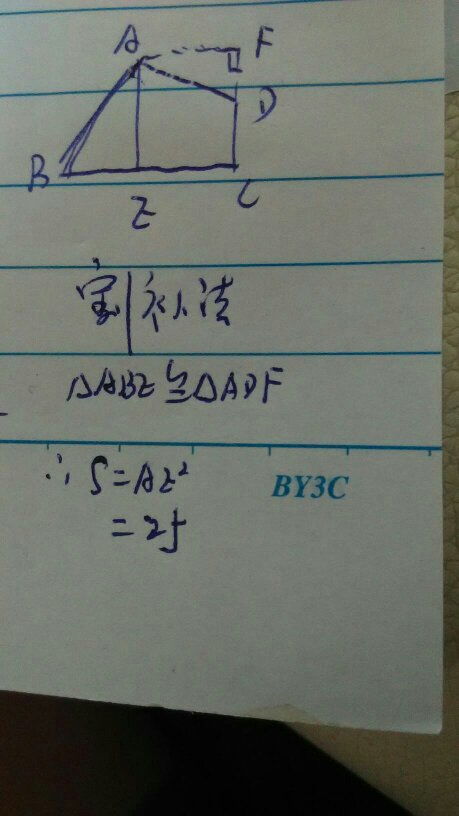 A F
D
B
E C
割补法
△ABE≌△ADF
∴ S=AE²
=25
BY3C